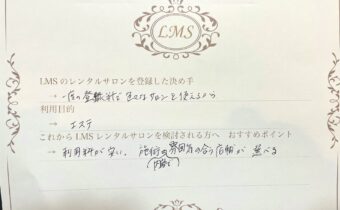 LMS
LMSのレンタルサロンを登録した決め手
→ 一度の登録料で色々なサロンを使えるから
利用目的
→ エステ
これからLMSレンタルサロンを検討される方へ おすすめポイント
→ 利用料が安い、施術の雰囲気の合う店舗が選べる